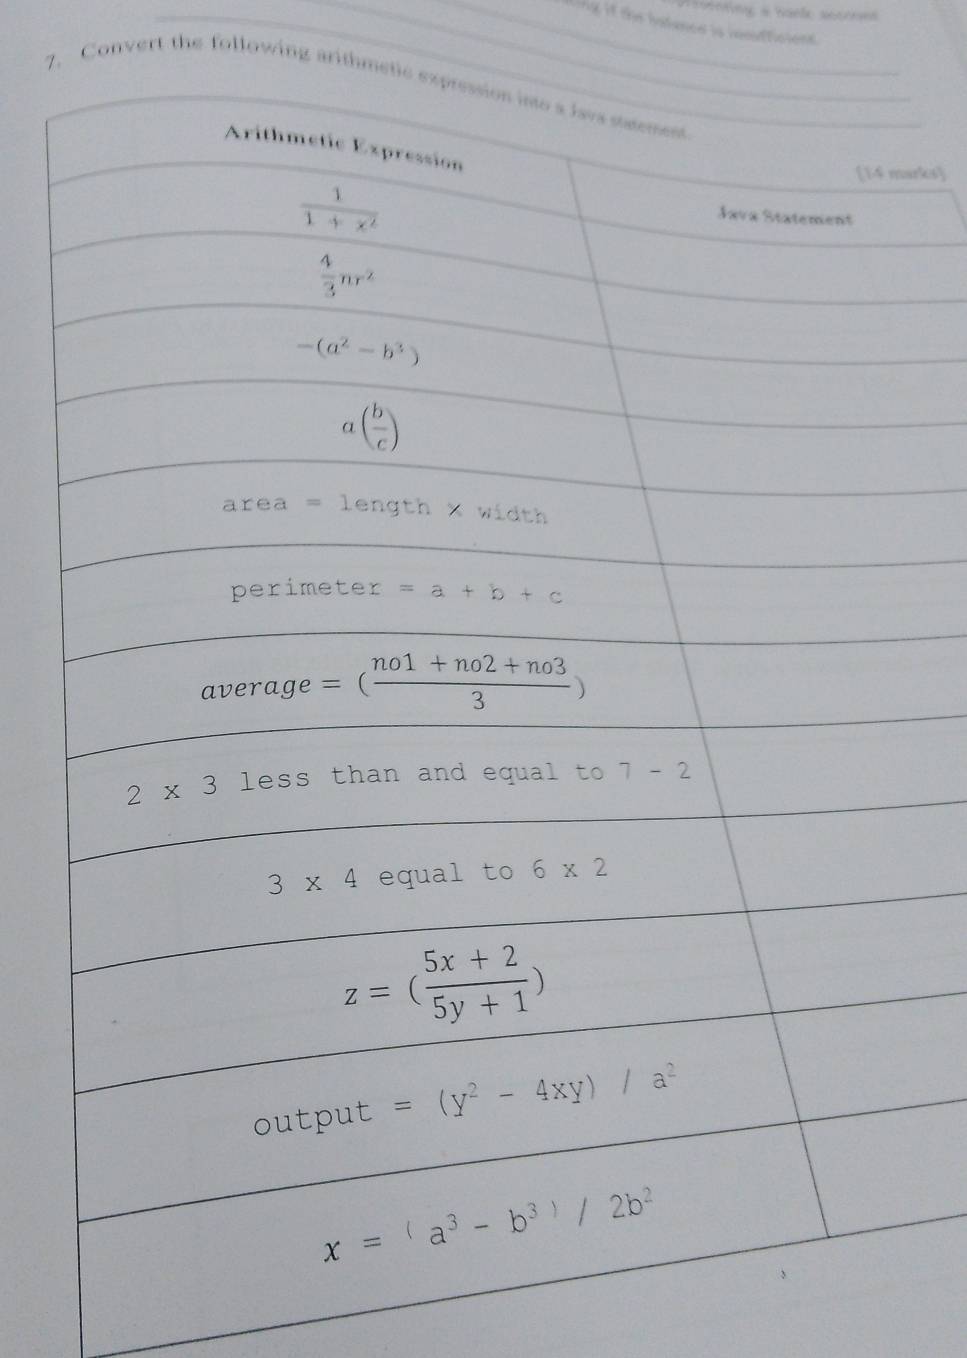 if the balance is insufficient.
7. Convert the following arithmetic expression into a Java statement.
[14 marks]
Arithmetic Expression
Java Statement
1 / 1 + x²
4/3 nr²
−(a² − b³)
a(b/c)
area = length × width
perimeter = a + b + c
average = (no1 + no2 + no3 / 3)
2 x 3 less than and equal to 7 - 2
3 x 4 equal to 6 x 2
z = (5x + 2 / 5y + 1)
output = (y² - 4xy) / a²
x = (a³ - b³) / 2b²